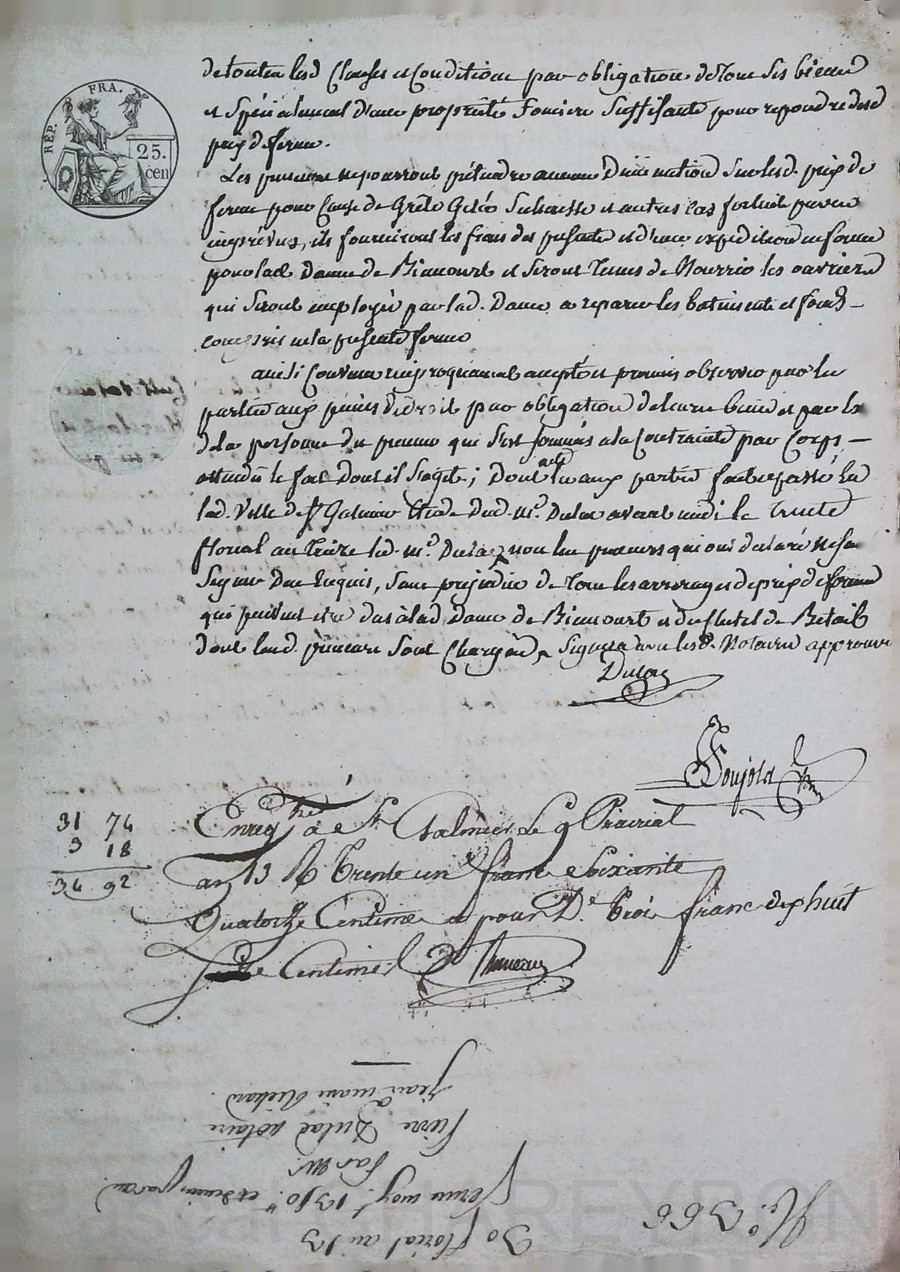 RÉP. FRA.
25.
cen
de toutes lesd Clauses et Conditions par obligation de Tous ses biens
et Spécialement d'une propriété Fonciere Suffisante pour repondre desd
prix de ferme.
Les preneurs ne pourront prétendre aucune Diminution Sur lesd. prix de
ferme pour Cause de Grêle Gelée Secheresse et autres Cas fortuits prevus
imprévus, ils fourniront les frais des presentes et d'une expedition en forme
pour lad. Dame de et seront Tenus de Nourrir les ouvriers
qui Seront employés par lad. Dame a reparer les batiments et fonds
compris en la presente ferme
ainsi Convenu reciproquement accepté et promis observer par les
parties aux peines de droit par obligation de leurs biens et par
de la personne du preneur qui s'est soumis a la Contrainte par Corps
attendu le fait dont il S'agit; Dont acte aux parties fait et passé En
lad. Ville de St Galmier Etude dud. Me. Dulac avant midi le Trente
floreal an Treize led. Me. Dulac non les preneurs qui ont declaré ne le
Signer De ce Requis, Sans prejudice de Tous les arrerages de prix de ferme
qui peuvent etre dus à lad. Dame de et du Cheptel de Betail
dont lesd. preneurs Sont Chargés Signé avec lesd. Notaires approuvé
Dulac
Soujola
31 74
3 18
34 92
Enregtré à St Galmier Le 9 Prairial
an 13 R Trente un franc Soixante
Quatorze Centimes et pour De Trois franc dix huit
Centimes
No. 366
30 floréal an 13
ferme moyt. 1310 et
Par Me.
Pierre Dulac notaire
Jean Marie Richard